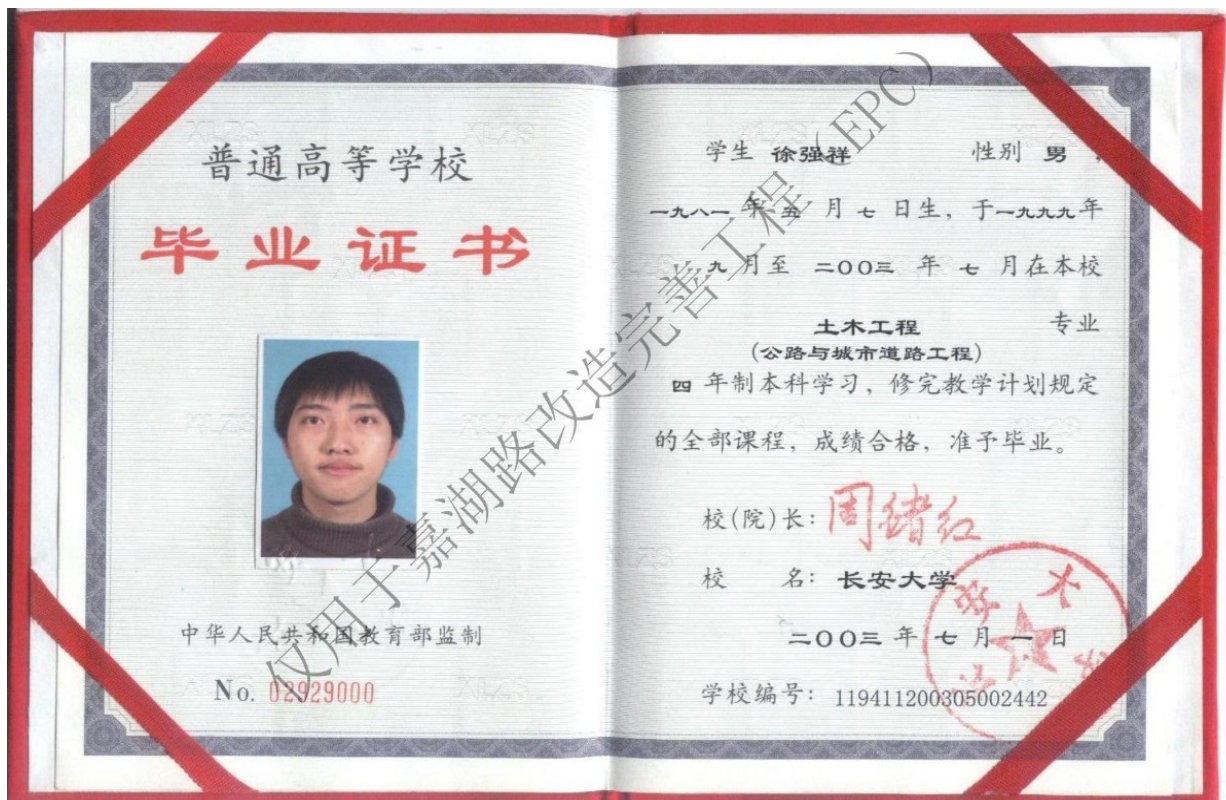 普通高等学校
毕业证书
中华人民共和国教育部监制
No. 02929000
学生 徐强祥 性别 男，
一九八一 年 五 月 七 日生，于一九九九年
九 月至 二〇〇三 年 七 月在本校
土木工程 专业
(公路与城市道路工程)
四 年制本科学习，修完教学计划规定
的全部课程，成绩合格，准予毕业。
校(院)长：周绪红
校 名：长安大学
二〇〇三 年 七 月 一 日
学校编号：119411200305002442
长安大学
仅用于嘉湖路改造完善工程（EPC）